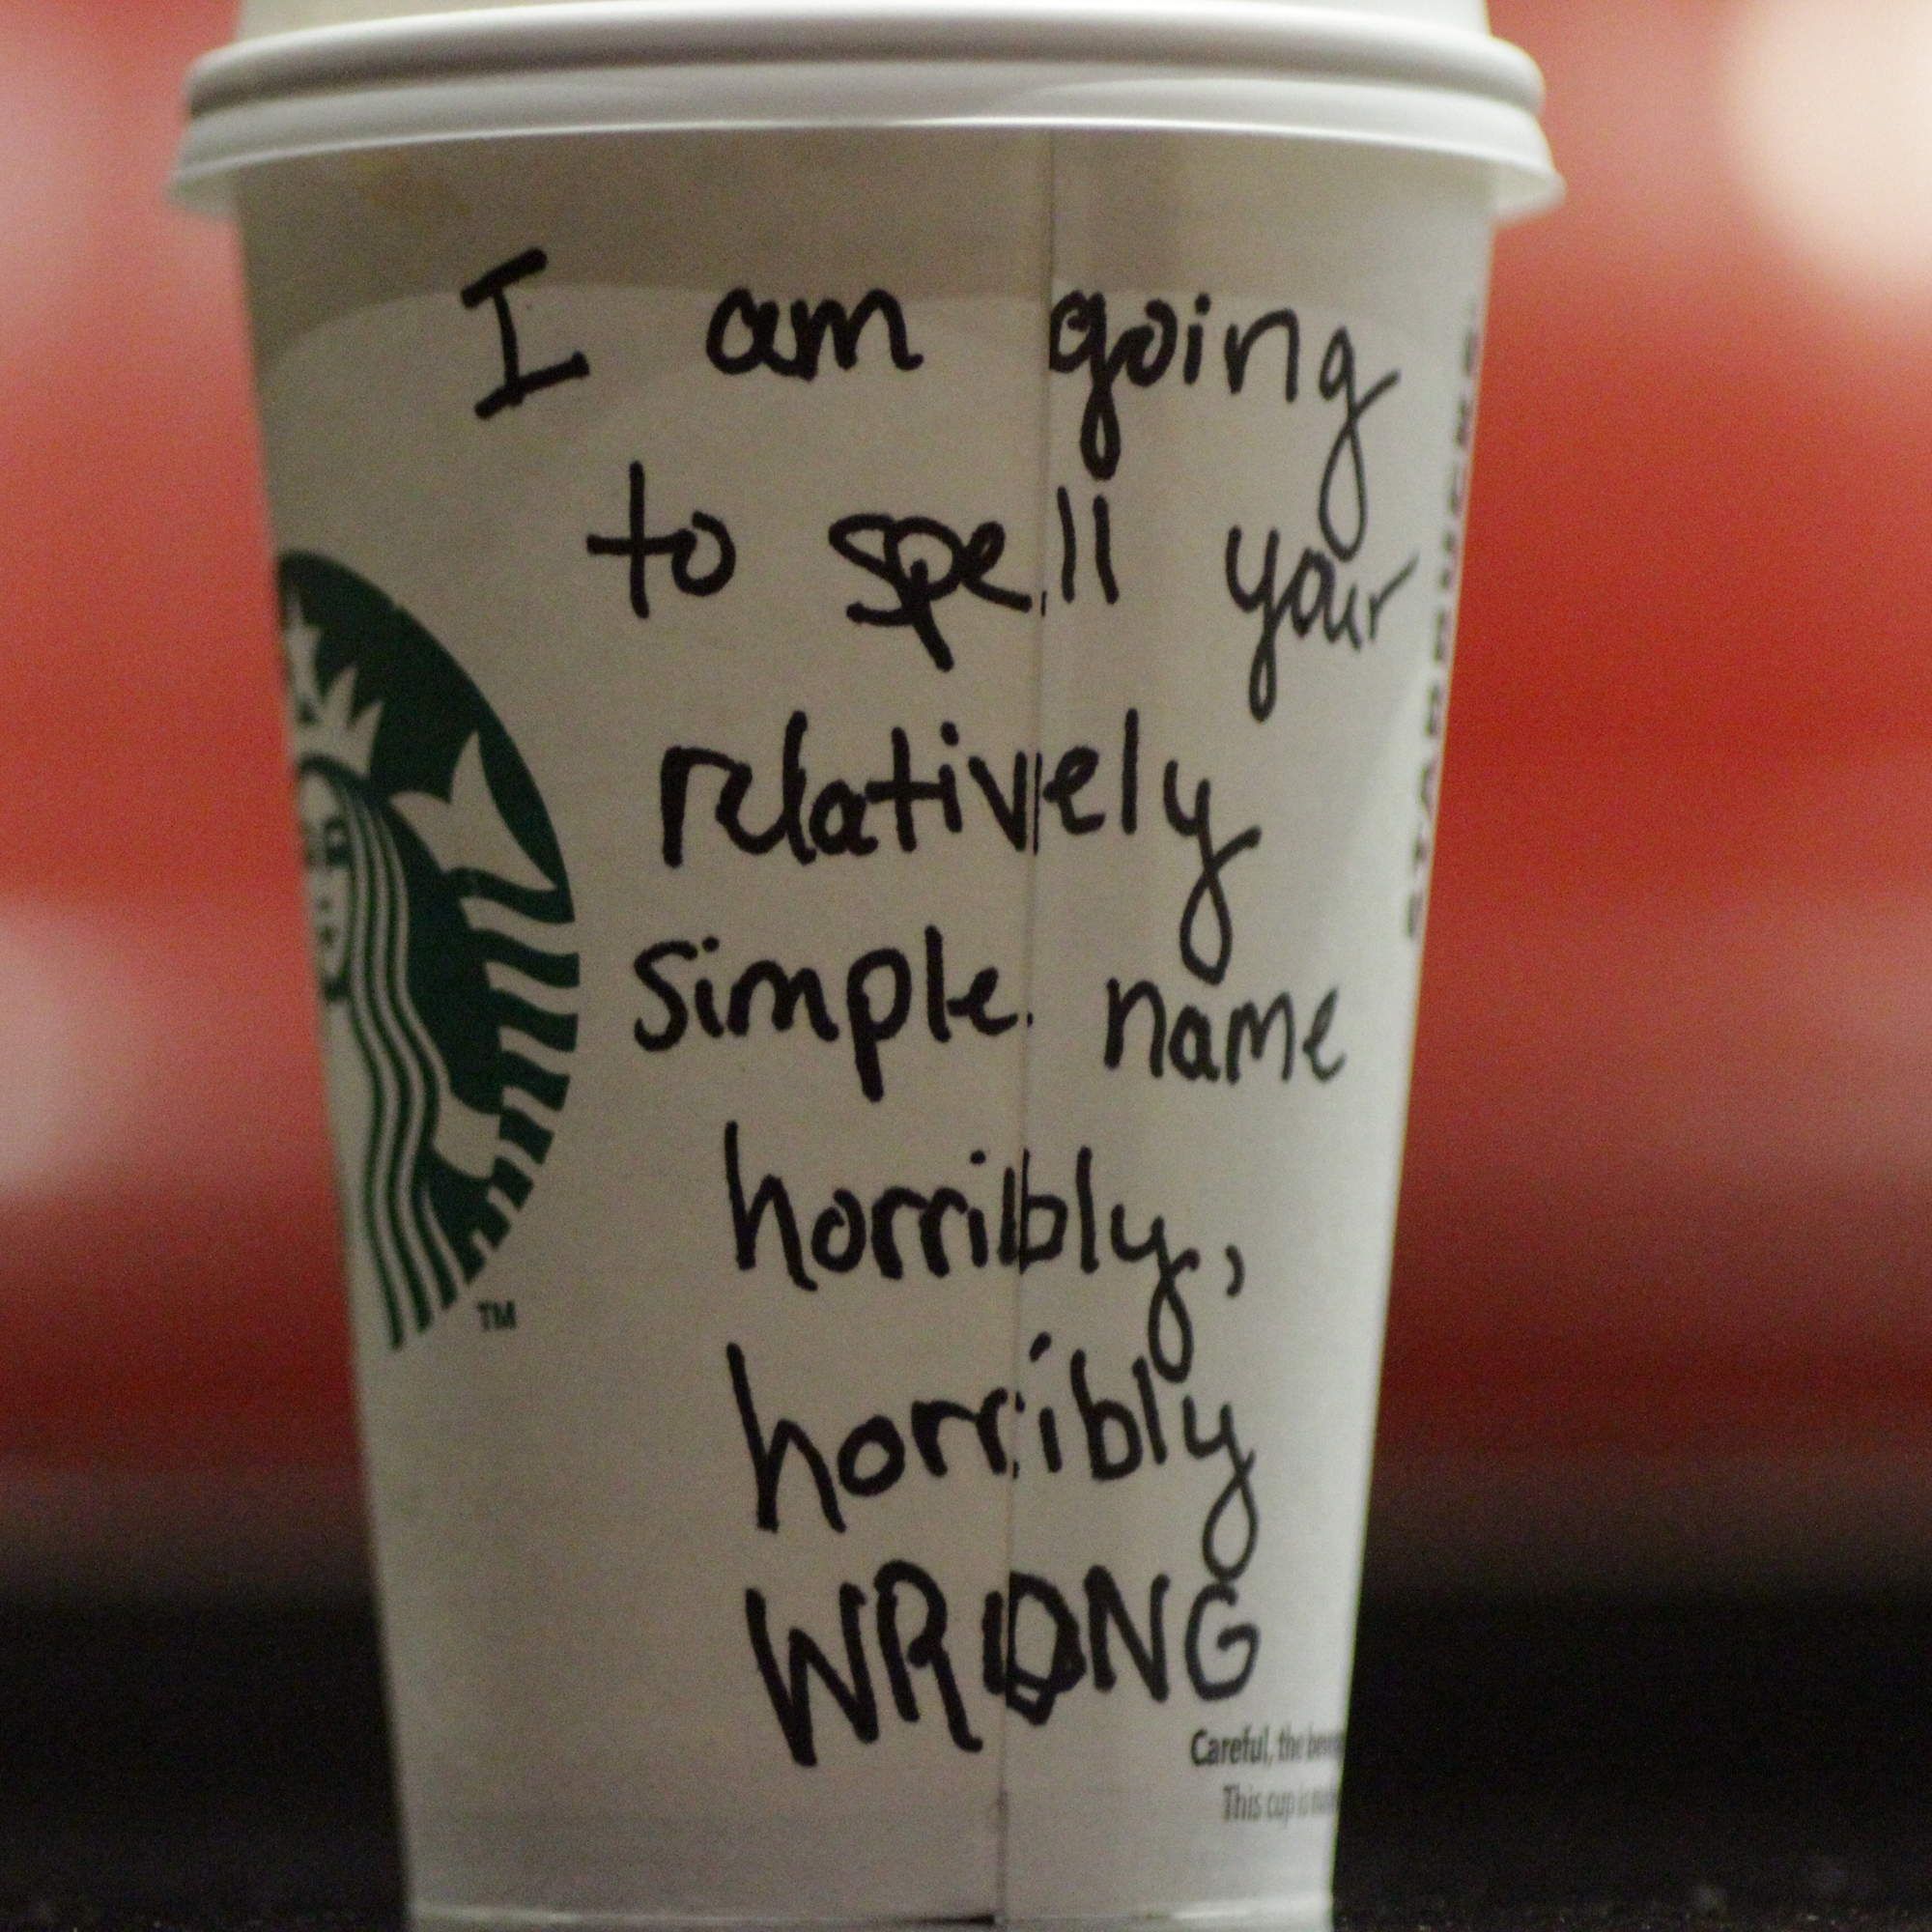 I am going
to spell your
relatively
simple name
horribly,
horribly
WRONG
TM
STARBUCKS
Careful, the
This cup is